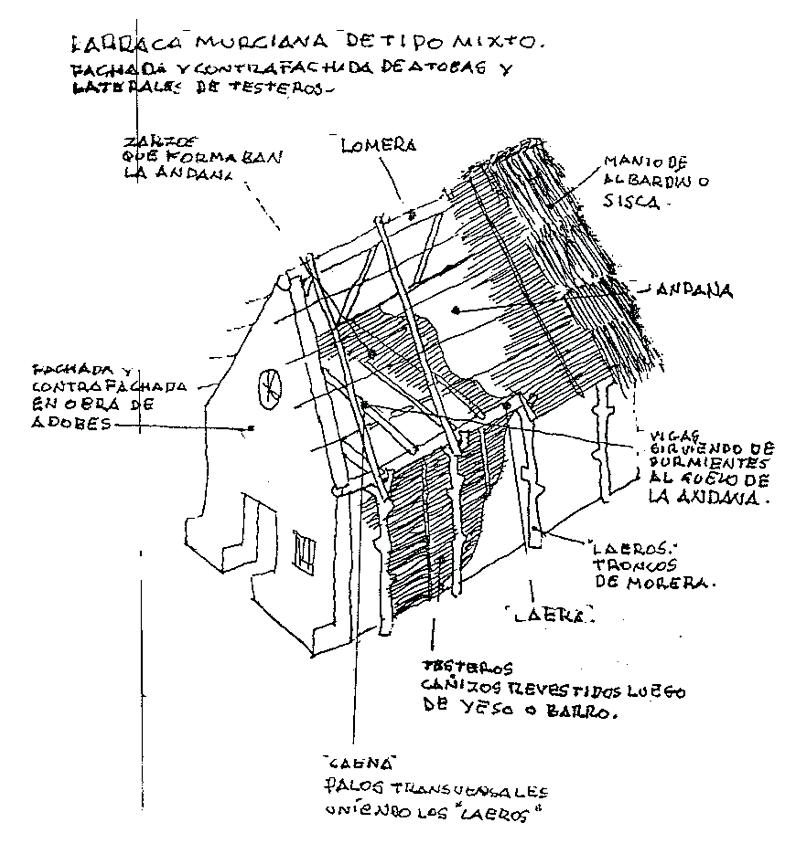 BARRACA "MURCIANA" DE TIPO MIXTO.
FACHADA Y CONTRAFACHADA DE ATOBAS Y
LATERALES DE TESTEROS-
ZARZOS
QUE FORMABAN
LA ANDANA
"LOMERA
MANTO DE
ALBARDIN O
SISCA.
ANDANA
FACHADA Y
CONTRAFACHADA
EN OBRA DE
ADOBES
VIGAS
SIRVIENDO DE
DURMIENTES
AL SUELO DE
LA ANDANA.
"LAEROS."
TRONCOS
DE MORERA.
"LAERA".
TESTEROS
CAÑIZOS REVESTIDOS LUEGO
DE YESO O BARRO.
"CAENA"
PALOS TRANSVERSALES
UNIENDO LOS "LAEROS"